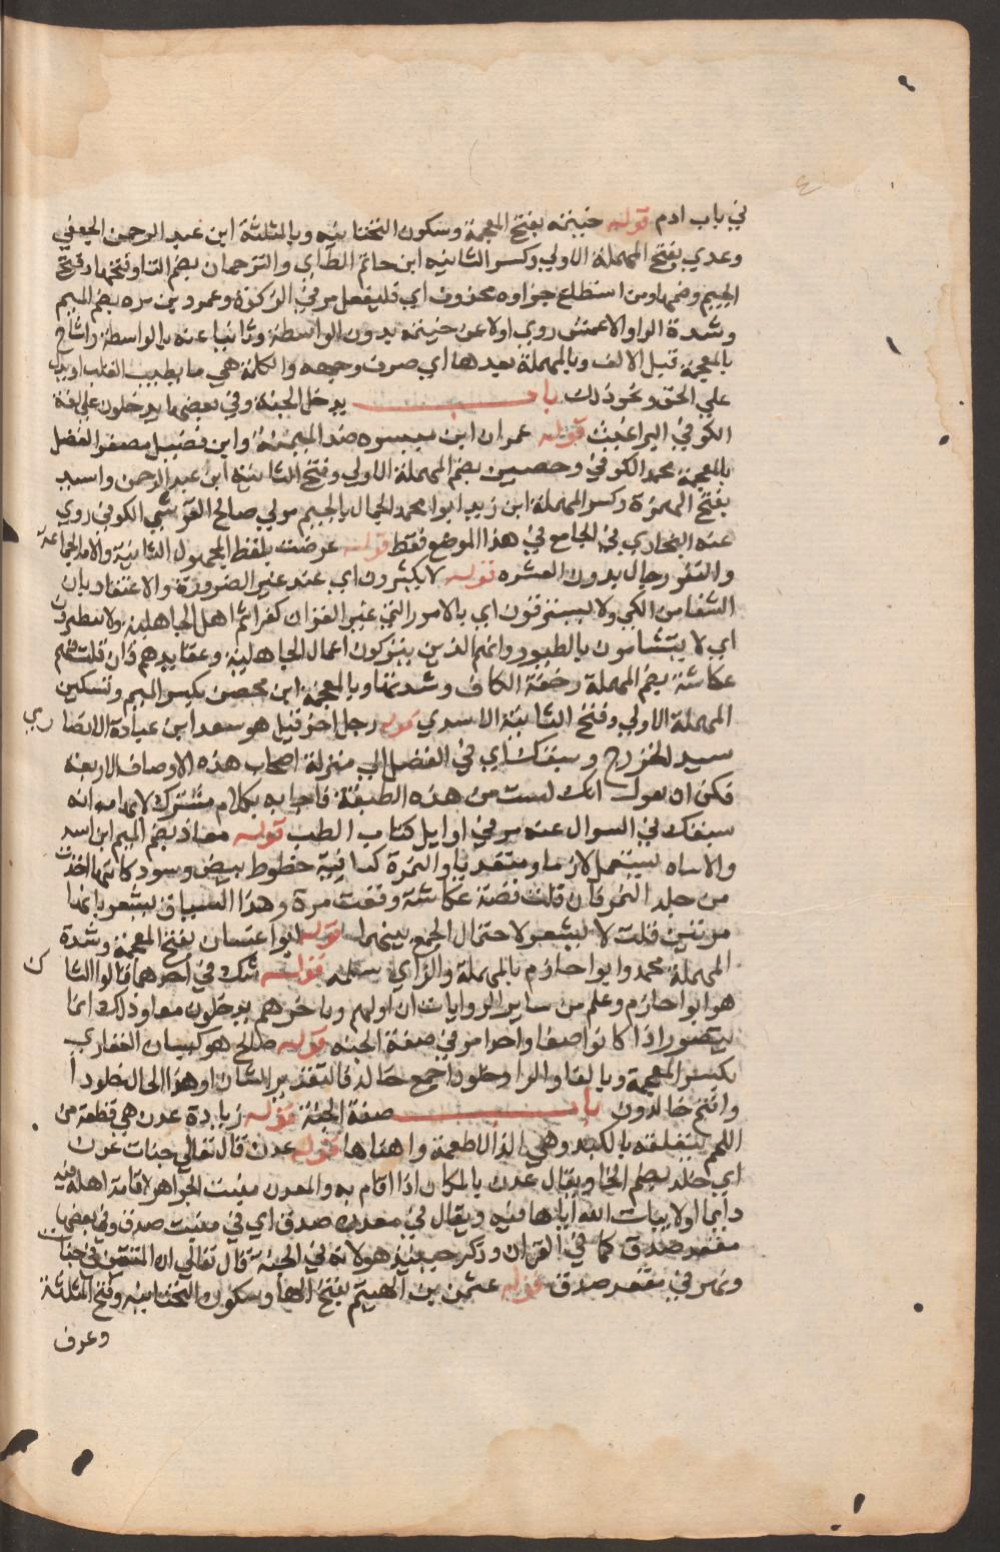 في باب ادم قوله خيثمة بفتح المعجمة وسكون التحتانيه وبالمثلثة ابن عبد الرحمن الجعفي
وعدي بفتح المهملة الاولي وكسر الثانيه ابن حاتم الطاي والترجمان بضم التا وفتحها وفتح
الجيم وضمها ومن استطاع جزاوه محذوف اي فليفعل مر في الزكوة وعمرو بن مره بضم الميم
وشدة الرا والاعمش روي اولا عن خيثمة بدون الواسطة وثانيا عنه بالواسطة واشاح
بالمعجمة قبل الالف وبالمهملة بعدها اي صرف وجهه والكلمة هي ما يطيب القلب او يدل
علي الحق ونحو ذلك باب يدخل الجنة وفي بعضها يدخلون علي لغة
الكوفي البراغيث قوله عمران ابن ميسره ضد الميمنة وابن فضيل مصغر الفضل
بالمعجمة محمد الكوفي وحصين بضم المهملة الاولي وفتح الثانية ابن عبد الرحمن واسيد
بفتح الهمزة وكسر المهملة ابن زيد ابوا محمد الجمال بالجيم مولي صالح القرشي الكوفي روي
عنه البخاري في الجامع في هذا الموضع فقط قوله عرضت بلفظ المجهول الثانية والامة الجماعة
والنفر رجال بدون العشره قوله لا يكتوون اي عند غير الضرورة والاعتقاد بان
الشفا من الكي ولا يسترقون اي بالامور التي غير القران كعزائم اهل الجاهلية ولا يتطيرون
اي لا يتشامون بالطيور وانهم الذين يتركون اعمال الجاهلية وعقايدهم فان قلت فهم
عكاشة بضم المهملة وخفة الكاف وشدتها وبالمعجمة ابن محصن بكسر الميم وتسكين
المهملة الاولي وفتح الثانية الاسدي قوله رجل اخر قيل هو سعد ابن عبادة الانصاري
سيد الخزرج وسبقك اي في الفضل الي منزلة اصحاب هذه الاوصاف الاربعة
فكره ان يقول انك لست من هذه الطبقة فاجابه بكلام مشترك لايهامه انه
سبقك في السوال عنه مر في اوايل كتاب الطب قوله معاذ بضم الميم ابن اسد
والاساه يستعمل لازما ومتعديا والنمرة كسا فيه خطوط بيض وسود كانها اخذت
من جلد النمر فان قلت قصة عكاشة وقعت مرة وهذا السياق يشعر بانها
مرتين قلت لا يشعر لاحتمال الجمع بينهما قوله ابوا غسان بفتح المعجمة وشدة
المهملة محمد وابوا حازم بالمهملة والزاي سلمة قوله شك في احدهما قالوا الشاك
هو ابوا حازم وعلم من ساير الروايات ان اولهم وباخرهم يدخلون معا وذلك انما
يتصور اذا كانوا صفا واحدا مر في صفة الجنه قوله صالح هو كيسان الغفاري
بكسر المعجمة وبالفا والرا وخلود اجمع خالد فالتقدير الشان او هذا الحال خلود ا
وانتم خالدون باب صفة الجنة قوله زيادة عدن هي قطعة من
اللحم متعلقة بالكبد وهي الذ الاطعمة واهناها قوله عدن قال تعالي جنات عدن
اي خلد بضم الخا ويقال عدن بالمكان اذا اقام به والمعدن منبت الجواهر لاقامة اهله فيه
دايما اولانبات الله اياها فيه ويقال في معدن صدق اي في منبت صدق وفي بعضها
مقعد صدق كما في القران وذكر حينئذ هو لانه في الجنة قال تعالي ان المتقين في جنات
ونهر في مقعد صدق قوله عثمن بن الهيثم بفتح الها وسكون التحتانيه وفتح المثلثة
وعرف